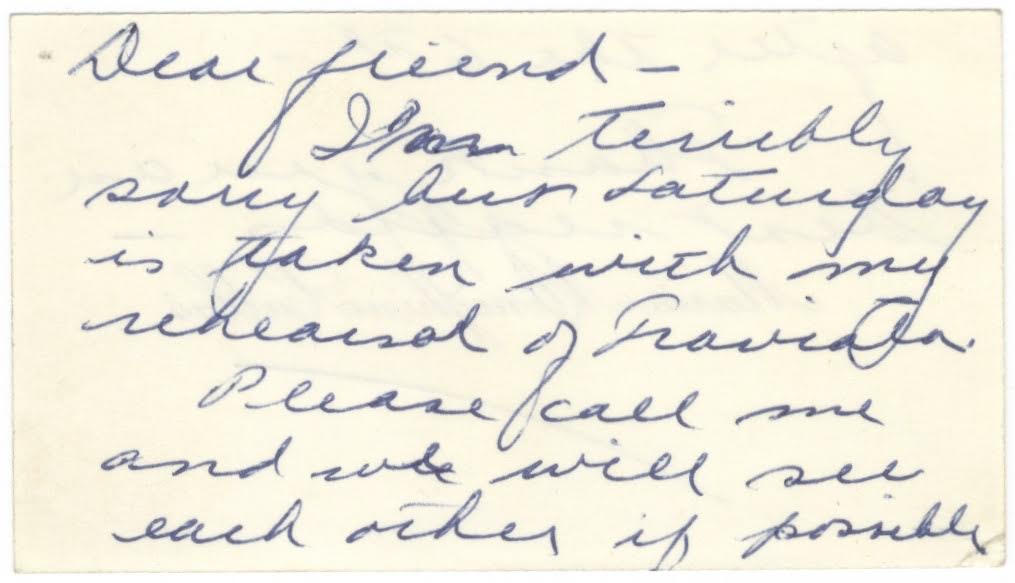 Dear friend –
I'm terribly
sorry but Saturday
is taken with my
rehearsal of Traviata.
Please call me
and we will see
each other if possible